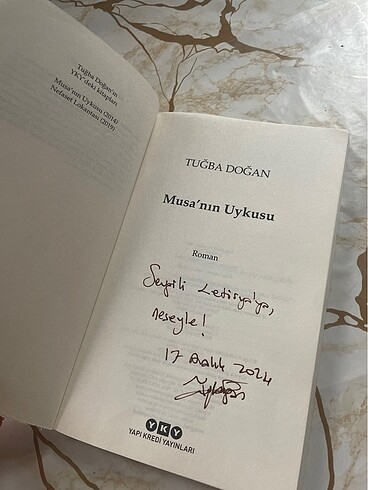 Tuğba Doğan'ın
YKY'deki kitapları
Musa'nın Uykusu (2014)
Nefaset Lokantası (2019)
TUĞBA DOĞAN
Musa'nın Uykusu
Roman
Sevgili Letisya'ya,
neşeyle!
17 Aralık 2024
YKY
YAPI KREDİ YAYINLARI